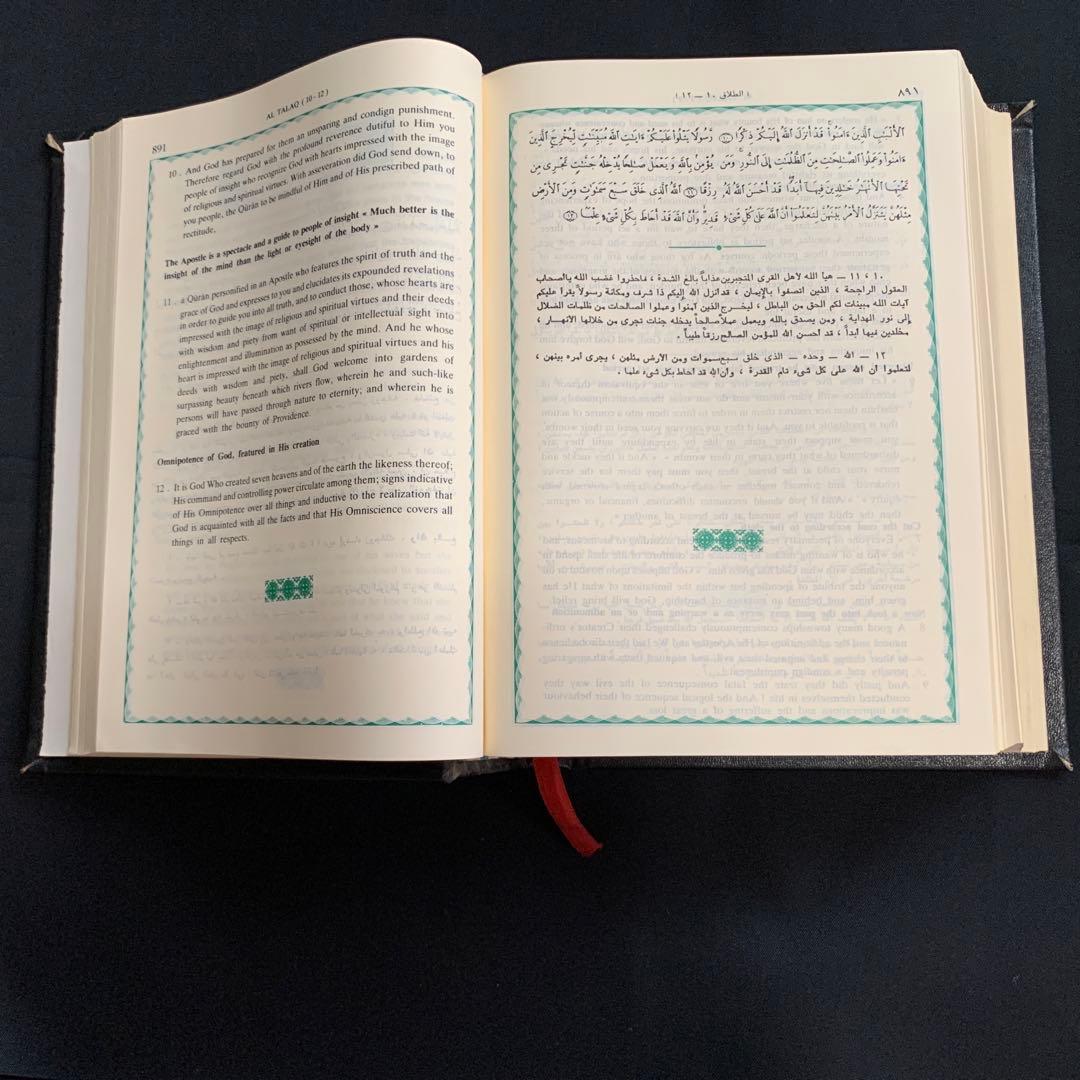 AL TALAQ (10 - 12)
891
10 . And God has prepared for them an unsparing and condign punishment.
Therefore regard God with the profound reverence dutiful to Him you
people of insight who recognize God with hearts impressed with the image
of religious and spiritual virtues. With asseveration did God send down, to
you people, the Qūrān to be mindful of Him and of His prescribed path of
rectitude,
The Apostle is a spectacle and a guide to people of insight « Much better is the
insight of the mind than the light or eyesight of the body »
11 . a Qūrān personified in an Apostle who features the spirit of truth and the
grace of God and expresses to you and elucidates its expounded revelations
in order to guide you into all truth, and to conduct those, whose hearts are
impressed with the image of religious and spiritual virtues and their deeds
with wisdom and piety from want of spiritual or intellectual sight into
enlightenment and illumination as possessed by the mind. And he whose
heart is impressed with the image of religious and spiritual virtues and his
deeds with wisdom and piety, shall God welcome into gardens of
surpassing beauty beneath which rivers flow, wherein he and such-like
persons will have passed through nature to eternity; and wherein he is
graced with the bounty of Providence.
Omnipotence of God, featured in His creation
12 . It is God Who created seven heavens and of the earth the likeness thereof;
His command and controlling power circulate among them; signs indicative
of His Omnipotence over all things and inductive to the realization that
God is acquainted with all the facts and that His Omniscience covers all
things in all respects.
( الطلاق ١٠ — ١٢ )
٨٩١
ٱلۡأَلۡبَٰبِ ٱلَّذِينَ ءَامَنُواْۚ قَدۡ أَنزَلَ ٱللَّهُ إِلَيۡكُمۡ ذِكۡرٗا ١٠ رَّسُولٗا يَتۡلُواْ عَلَيۡكُمۡ ءَايَٰتِ ٱللَّهِ مُبَيِّنَٰتٖ لِّيُخۡرِجَ ٱلَّذِينَ
ءَامَنُواْ وَعَمِلُواْ ٱلصَّٰلِحَٰتِ مِنَ ٱلظُّلُمَٰتِ إِلَى ٱلنُّورِۚ وَمَن يُؤۡمِنۢ بِٱللَّهِ وَيَعۡمَلۡ صَٰلِحٗا يُدۡخِلۡهُ جَنَّٰتٖ تَجۡرِي مِن
تَحۡتِهَا ٱلۡأَنۡهَٰرُ خَٰلِدِينَ فِيهَآ أَبَدٗاۖ قَدۡ أَحۡسَنَ ٱللَّهُ لَهُۥ رِزۡقًا ١١ ٱللَّهُ ٱلَّذِي خَلَقَ سَبۡعَ سَمَٰوَٰتٖ وَمِنَ ٱلۡأَرۡضِ
مِثۡلَهُنَّۖ يَتَنَزَّلُ ٱلۡأَمۡرُ بَيۡنَهُنَّ لِتَعۡلَمُوٓاْ أَنَّ ٱللَّهَ عَلَىٰ كُلِّ شَيۡءٖ قَدِيرٞ وَأَنَّ ٱللَّهَ قَدۡ أَحَاطَ بِكُلِّ شَيۡءٍ عِلۡمَۢا ١٢
١٠ ، ١١ — هيأ الله لأهل القرى المتجبرين عذاباً بالغ الشدة ، فاحذروا غضب الله يا أصحاب
العقول الراجحة ، الذين اتصفوا بالإيمان ، قد أنزل الله إليكم ذا شرف ومكانة رسولاً يقرأ عليكم
آيات الله مبينات لكم الحق من الباطل ، ليخرج الذين آمنوا وعملوا الصالحات من ظلمات الضلال
إلى نور الهداية ، ومن يصدق بالله ويعمل عملاً صالحاً يدخله جنات تجرى من خلالها الأنهار ،
مخلدين فيها أبداً ، قد أحسن الله للمؤمن الصالح رزقاً طيباً .
١٢ — الله — وحده — الذى خلق سبع سموات ومن الأرض مثلهن ، يجرى أمره بينهن ،
لتعلموا أن الله على كل شىء تام القدرة ، وأن الله قد أحاط بكل شىء علماً .